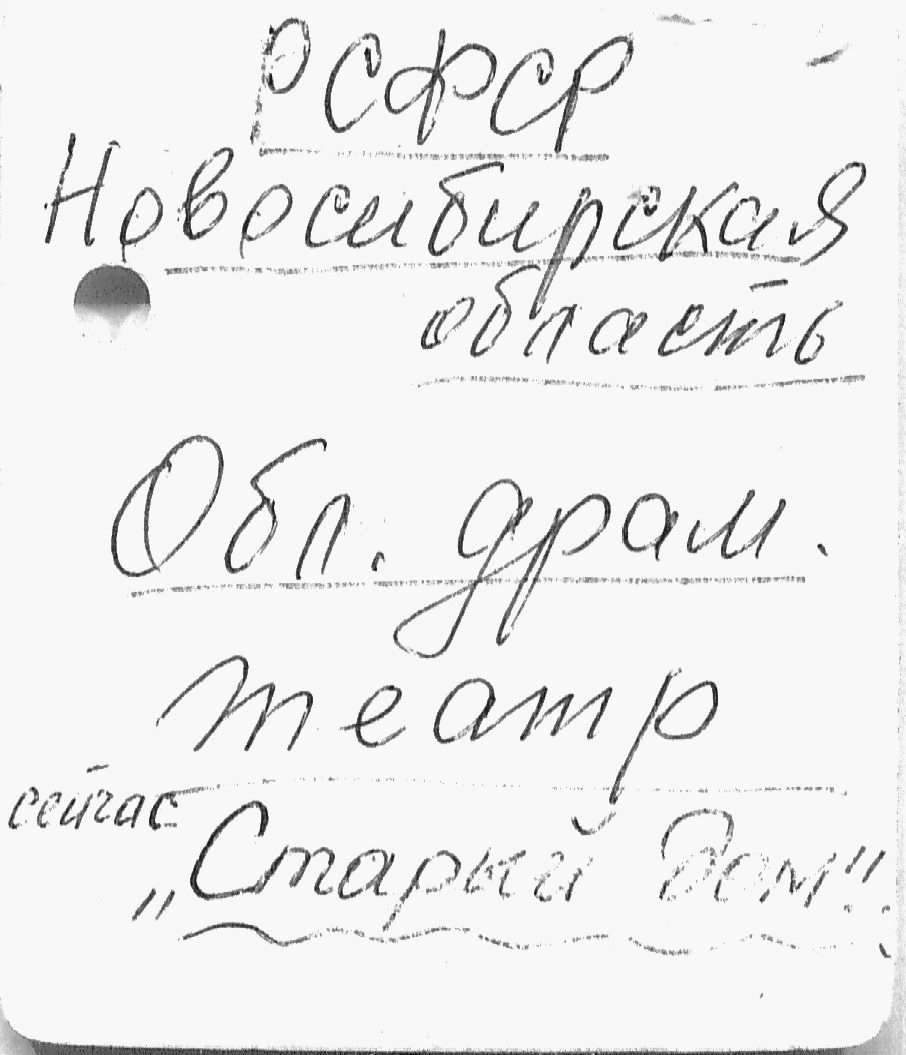 РСФСР
Новосибирская
область
Обл. драм.
театр
сейчас
„Старый Дом".